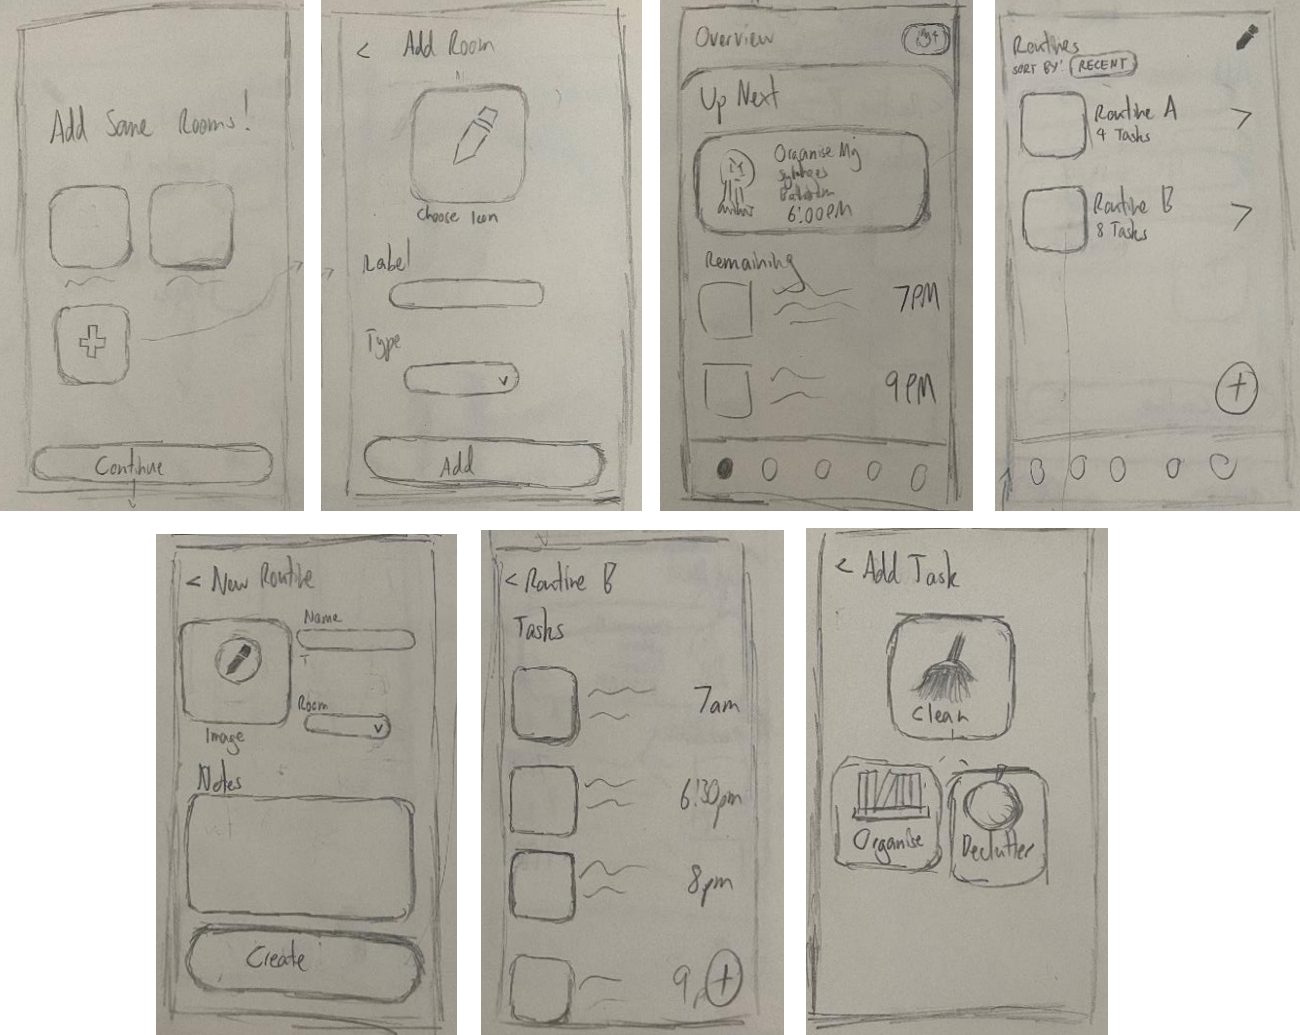 Add Some Rooms!
Continue
< Add Room
Choose Icon
Label
Type
Add
Overview
Up Next
Organise My
6:00PM
Remaining
7PM
9PM
Routines
SORT BY: RECENT
Routine A
4 Tasks
Routine B
8 Tasks
< New Routine
Name
Room
Image
Notes
Create
< Routine B
Tasks
7am
6:30pm
8pm
9
< Add Task
Clean
Organise
Declutter